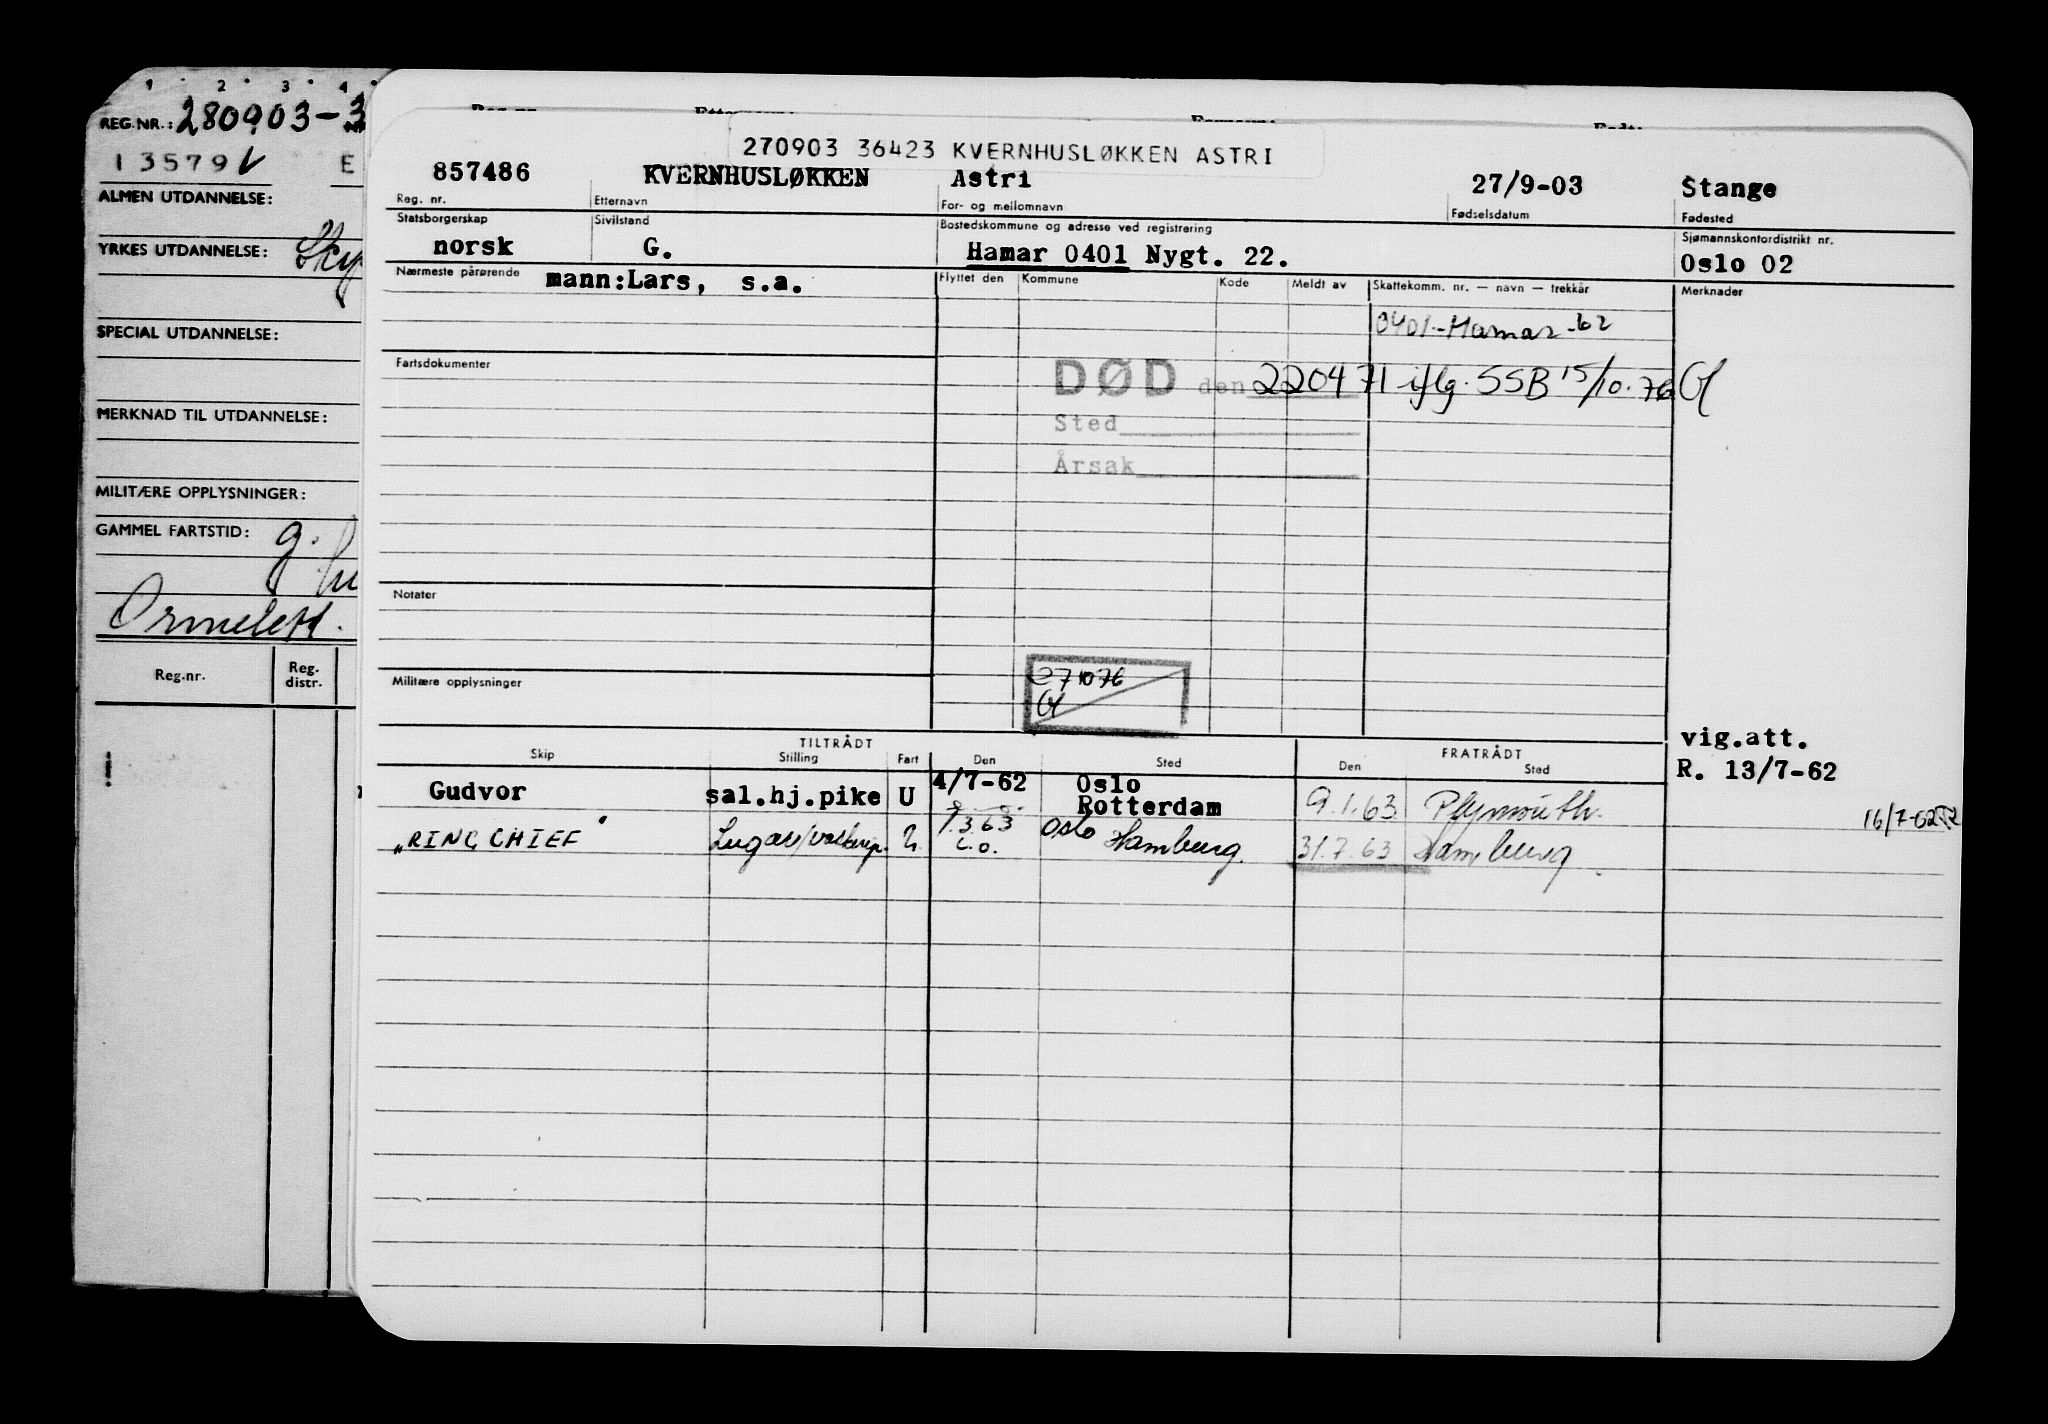 1 2 3 4
REG.NR.: 280903-3
13579 E
ALMEN UTDANNELSE:
YRKES UTDANNELSE:
SPECIAL UTDANNELSE:
MERKNAD TIL UTDANNELSE:
MILITÆRE OPPLYSNINGER:
GAMMEL FARTSTID: g.
Ormelett.
Reg.nr. Reg. distr.
270903 36423 KVERNHUSLØKKEN ASTRI
857486 KVERNHUSLØKKEN Astri 27/9-03 Stange
Reg. nr. Etternavn For- og mellomnavn Fødselsdatum Fødested
Statsborgerskap Sivilstand Bostedskommune og adresse ved registrering Sjømannskontordistrikt nr.
norsk G. Hamar 0401 Nygt. 22. Oslo 02
Nærmeste pårørende mann:Lars, s.a. Flyttet den Kommune Kode Meldt av Skattekomm. nr. — navn — trekkår Merknader
0401-Hamar-62
Fartsdokumenter
DØD den 220471 iflg. SSB 15/10.76
Sted
Årsak
Notater
Militære opplysninger
271076
TILTRÅDT FRATRÅDT
Skip Stilling Fart Den Sted Den Sted
vig.att.
R. 13/7-62
Gudvor sal.hj.pike U 4/7-62 Oslo Rotterdam 9.1.63 Plymouth.
16/7-62
"RING CHIEF" Lugar/vaskerip. U. 1.3.63 Oslo Hamburg. 31.7.63 Hamburg